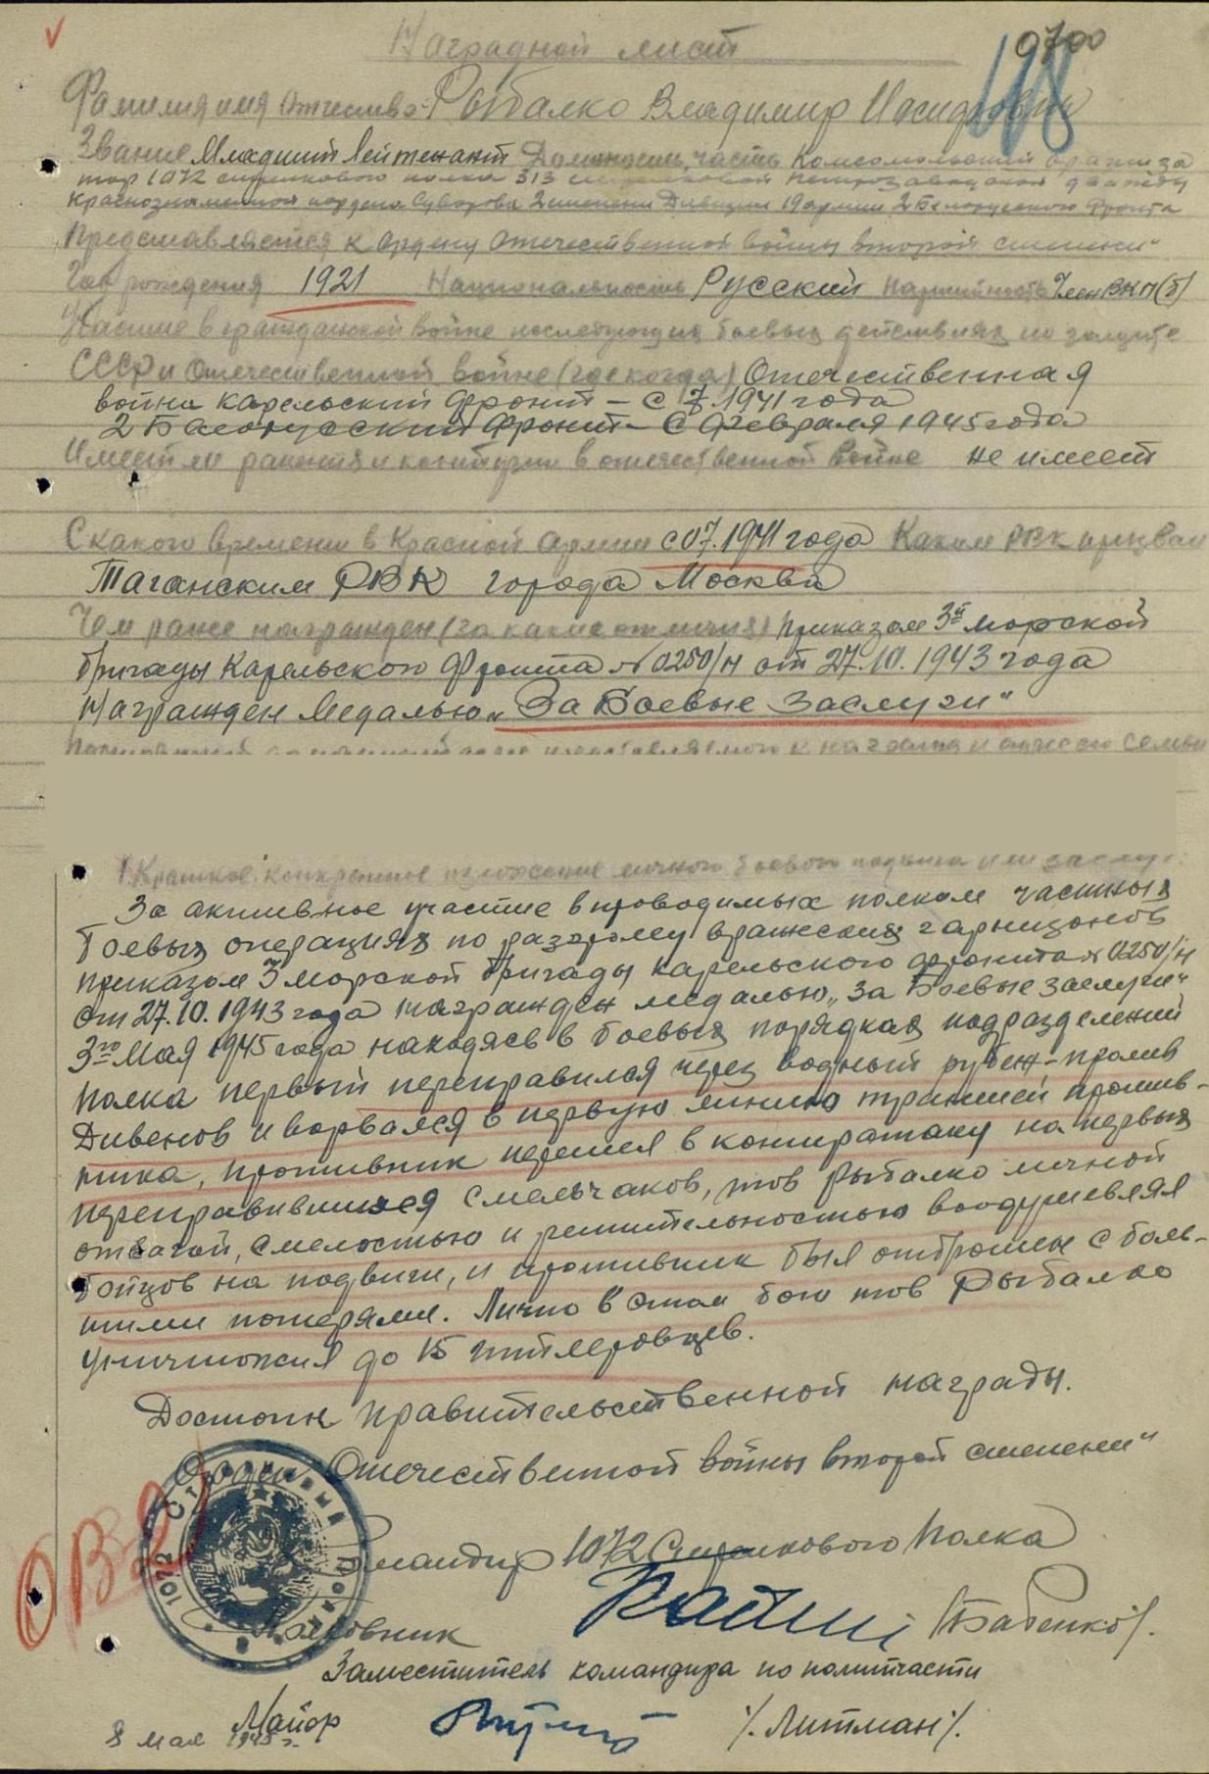 Наградной лист
0700
118
Фамилия имя отчество - Рыбалко Владимир
Звание Младший Лейтенант Должность, часть Комсомольский организа
тор 1072 стрелкового полка 313 стрелковой Петрозаводской дважды
Краснознаменной ордена Суворова 2 степени Дивизии 19 армии 2 Белорусского Фронта
Представляется к ордену Отечественной войны второй степени"
Год рождения 1921 Национальность Русский Партийность Член ВКП(б)
Участие в гражданской войне последующих боевых действиях по защите
СССР и Отечественной войне (где когда) Отечественная
война Карельский фронт - с 7.1941 года
2 Белорусский Фронт - с февраля 1945 года
Имеет ли ранения и контузии в отечественной войне не имеет
С какого времени в Красной армии с 07.1941 года Каким РВК призван
Таганским РВК города Москва
Чем ранее награжден (за какие отличия) приказом 3й морской
бригады Карельского Фронта № 0250/н от 27.10.1943 года
Награжден Медалью „За Боевые Заслуги"
представляемого к награде и адрес его семьи
Краткое конкретное изложение личного боевого подвига или заслуг
За активное участие в проводимых полком частных
боевых операциях по разгрому вражеских гарнизонов
приказом 3 морской бригады карельского фронта № 0250/н
от 27.10.1943 года награжден медалью „За Боевые Заслуги"
3го Мая 1945 года находясь в боевых порядках подразделений
полка первый переправился через водный рубеж - пролив
Дивенов и ворвался в первую линию траншей против-
ника, противник перешел в контратаку на первых
переправившихся смельчаков, тов Рыбалко личной
отвагой, смелостью и решительностью воодушевлял
бойцов на подвиги, и противник был отброшен с боль-
шими потерями. Лично в этом бою тов Рыбалко
уничтожил до 15 гитлеровцев.
Достоин правительственной награды.
Орден Отечественной войны второй степени"
Командир 1072 Стрелкового Полка
Полковник /Бабенко/.
Заместитель командира по политчасти
Майор /Литман/.
8 мая 1945 г.
ОВ2
1072 Стрелковый полк